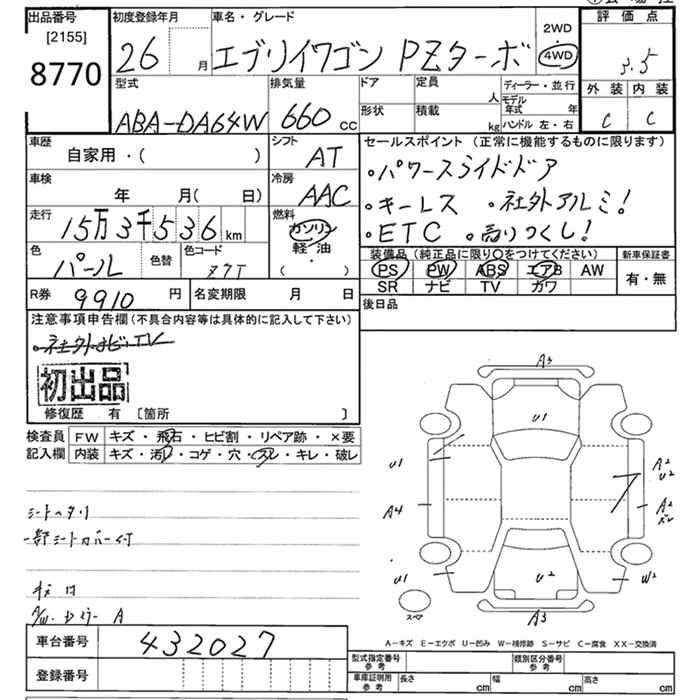 出品番号
[2155]
8770
初度登録年月
26 月
車名・グレード
エブリイワゴン PZターボ
2WD
4WD
評価点
3.5
外装 内装
C C
型式
ABA-DA64W
排気量
660 cc
ドア 定員 人
形状 積載 kg
ディーラー・並行
モデル年式 年
ハンドル 左・右
車歴
自家用・( )
シフト
AT
車検
年 月( 日)
冷房
AAC
走行
15万3千536 km
燃料
ガソリン
軽油
・( )
色
パール
色替
色コード
R券 9910 円
名変期限 月 日
セールスポイント (正常に機能するものに限ります)
・パワースライドドア
・キーレス ・社外アルミ!
・ETC ・売りつくし!
装備品(純正品に限り○をつけてください)
PS PW ABS エアB AW
SR ナビ TV カワ
新車保証書
有・無
後日品
注意事項申告欄(不具合内容等は具体的に記入して下さい)
・社外ナビ・TV
初出品
修復歴 有 [箇所 ]
検査員 FW キズ・飛石・ヒビ割・リペア跡・×要
記入欄 内装 キズ・汚レ・コゲ・穴・スレ・キレ・破レ
シートヘタリ
一部シートカバー付
A3
U1
U1
A2
U2
A4
A2
ズレ
U1
U2
W2
スペア
A3
A-キズ E-エクボ U-凹み W-補修跡 S-サビ C-腐食 XX-交換済
車台番号 432027
登録番号
型式指定番号 参考
類別区分番号 参考
車庫証明用 参考 長さ cm 幅 cm 高さ cm